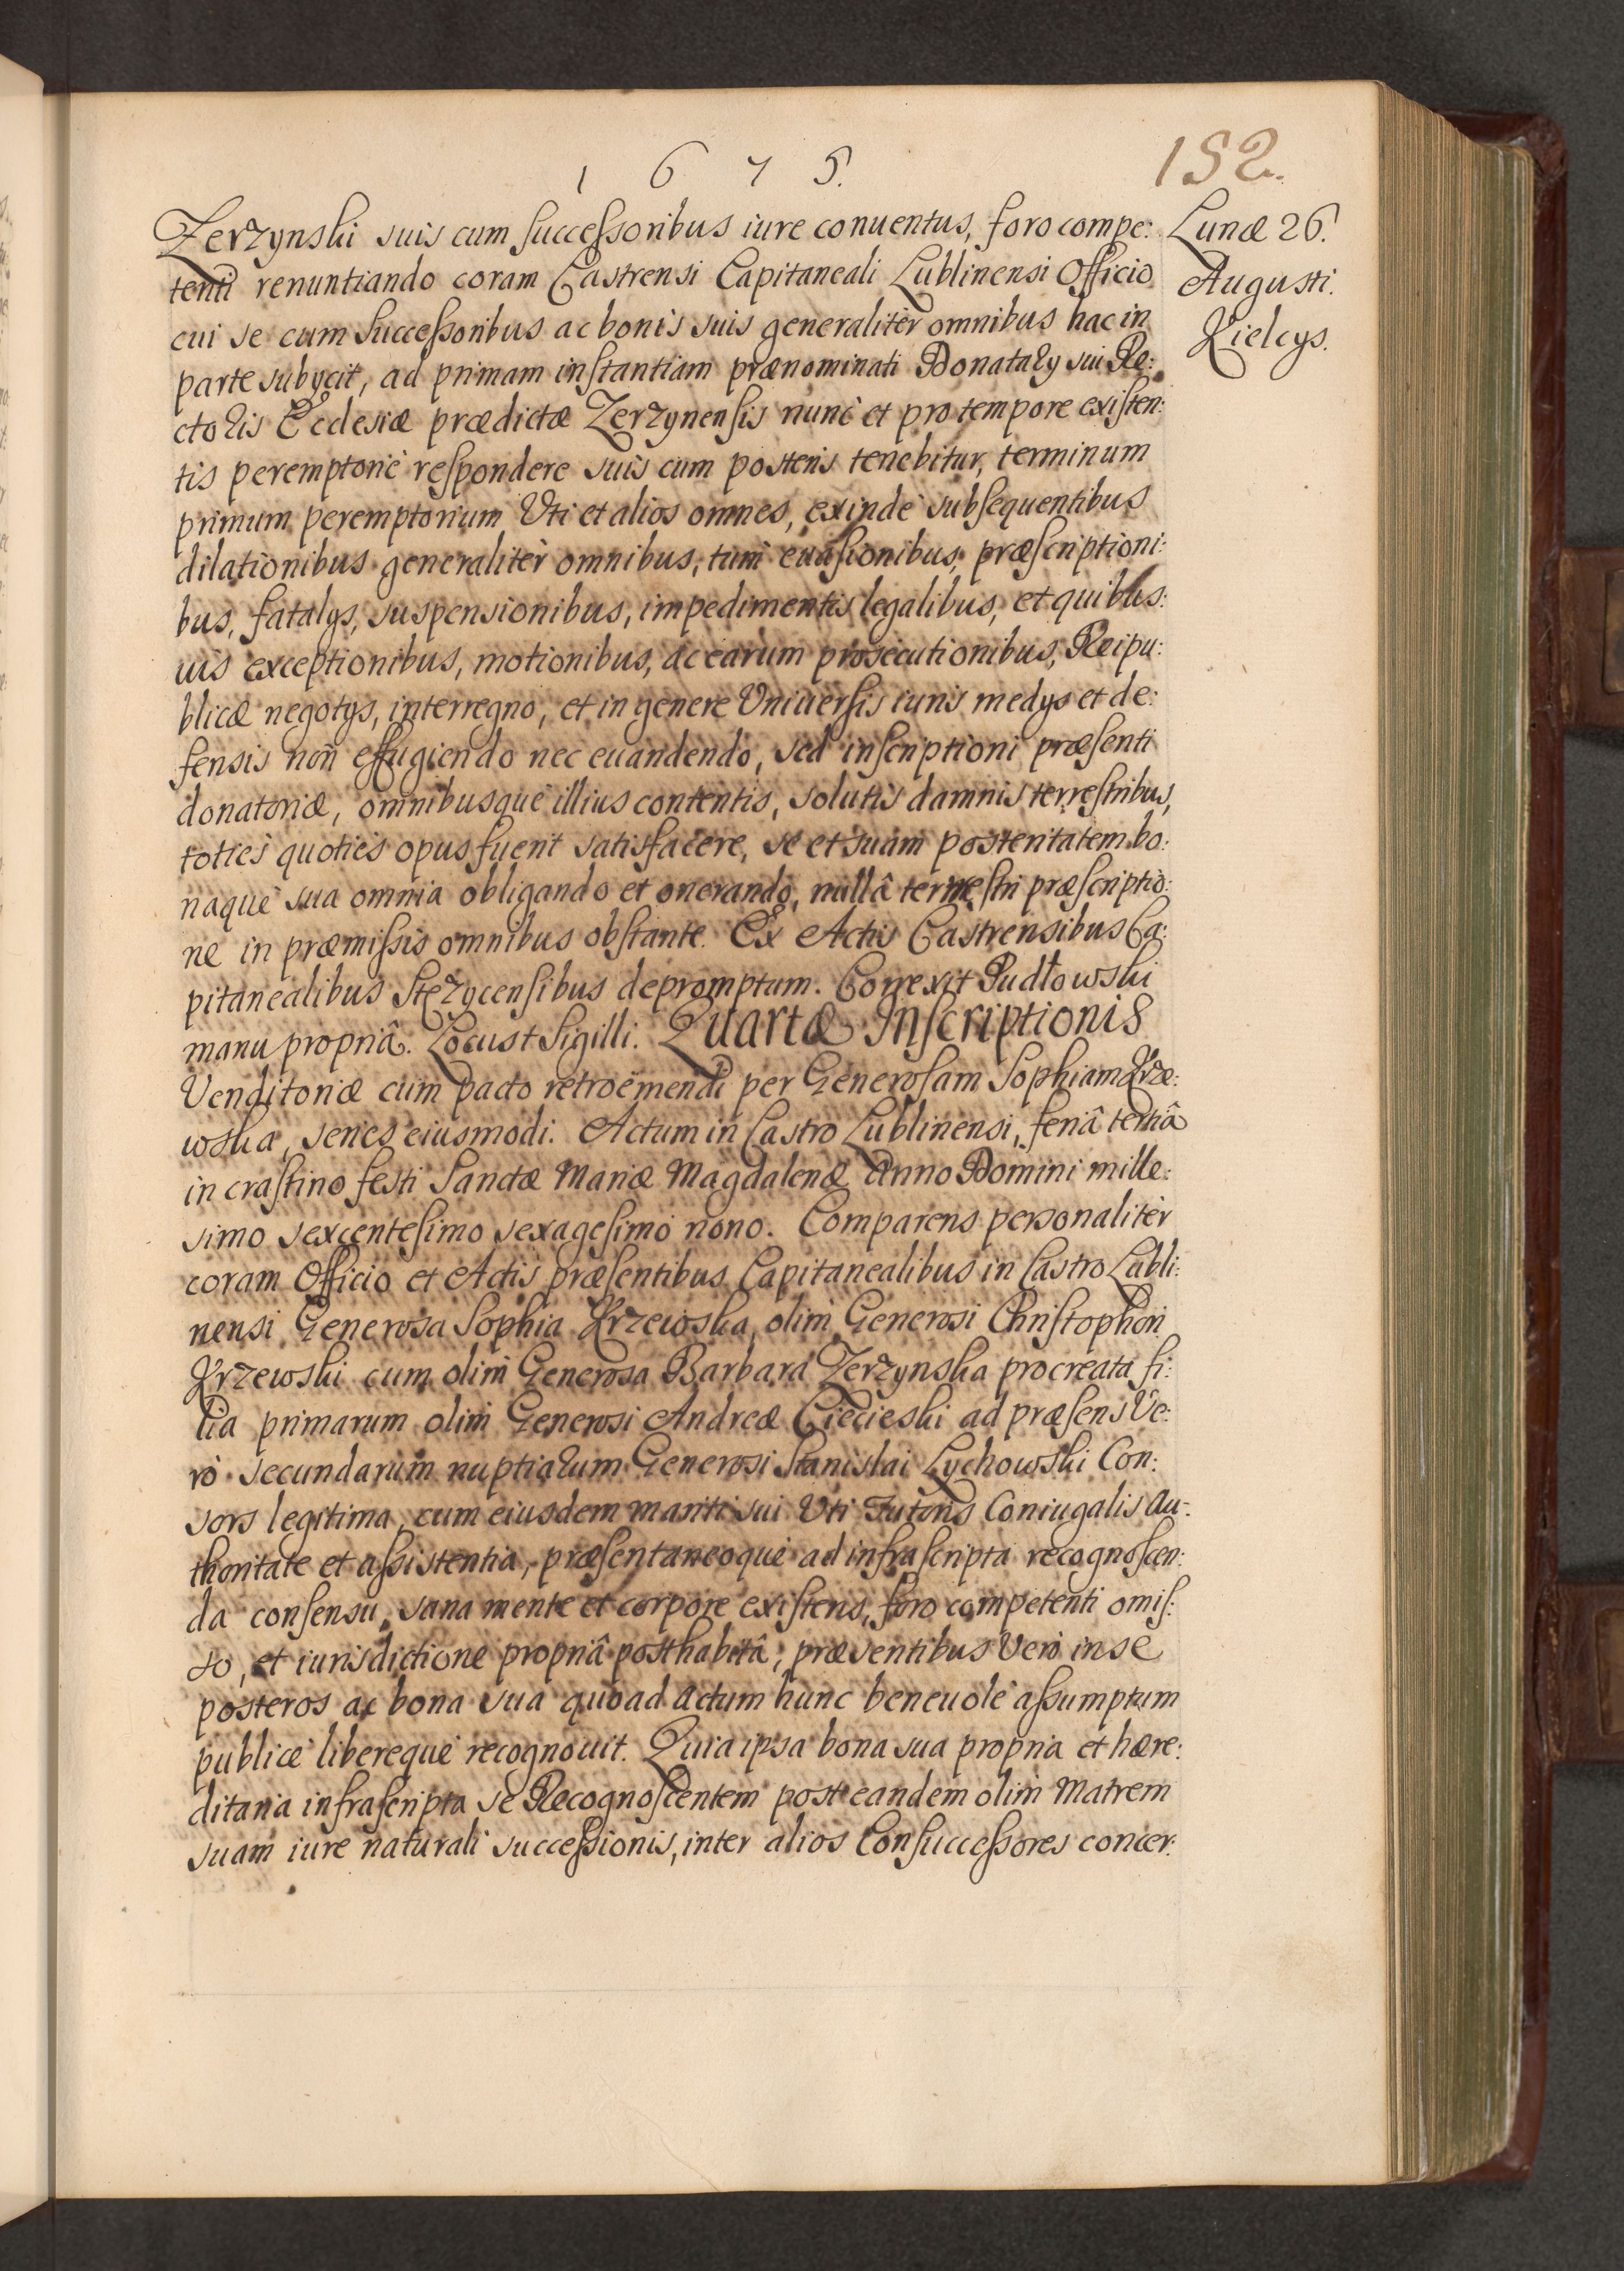 1 6 7 5.
152.
Zerzynski suis cum successoribus iure conuentus, foro compe:
tenti renuntiando coram Castrensi Capitaneali Lublinensi Officio
cui se cum successoribus ac bonis suis generalitèr omnibus hac in
parte subycit, ad primam instantiam prænominati Donatary sui Re:
ctoris Ecclesiæ prædictæ Zerzynensis nunc et pro tempore existen:
tis peremptoriè respondere suis cum posteris tenebitur, terminum
primum peremptorium Vti et alios omnes, exindè subsequentibus
dilationibus generalitèr omnibus, tum euasionibus, præscriptioni:
bus, fatalys, suspensionibus, impedimentis legalibus, et quibus:
uis exceptionibus, motionibus, ac earum prosecutionibus, Reipu:
blicæ negotys, interregno, et in genere Vniuersis iuris medys et de:
fensis non effugiendo nec euandendo, sed inscriptioni præsenti
donatoriæ, omnibusque illius contentis, solutis damnis terrestribus,
toties quoties opus fuerit satisfacere, se et suam posteritatem bo:
naque sua omnia obligando et onerando, nullâ terrestri præscriptio:
ne in præmissis omnibus obstante. Ex Actis Castrensibus Ca:
pitanealibus Stęzycensibus depromptum. Correxit Pudłowski
manu propriâ. Locus + Sigilli. Quartæ Inscriptionis
Venditoriæ cum pacto retroëmendi per Generosam Sophiam Krze:
wska, series eiusmodi. Actum in Castro Lublinensi, feriâ tertiâ
in crastino festi Sanctæ Mariæ Magdalenæ Anno Domini mille:
simo sexcentesimo sexagesimo nono. Comparens personalitèr
coram Officio et Actis præsentibus Capitanealibus in Castro Lubli:
nensi Generosa Sophia Krzewska, olim Generosi Christophori
Krzewski cum olim Generosa Barbara Zerzynska procreata fi:
lia primarum olim Generosi Andreæ Ciecieski ad præsens Ve:
rò secundarum nuptiarum Generosi Stanislai Lychowski Con:
sors legitima, cum eiusdem mariti sui Vti Tutoris Coniugalis au:
thoritate et assistentia, præsentaneoque ad infrascripta recognoscen:
da consensu, sana mente et corpore existens, foro competenti omis:
so, et iurisdictione propriâ posthabitâ, præsentibus Verò in se
posteros ac bona sua quoad actum hunc beneuolè assumptum
publicè liberequè recognouit. Quia ipsa bona sua propria et hære:
ditaria infrascripta se Recognoscentem post eandem olim Matrem
suam iure naturali successionis, inter alios Consuccessores concer:
Lunæ 26.
Augusti.
Kielcys.